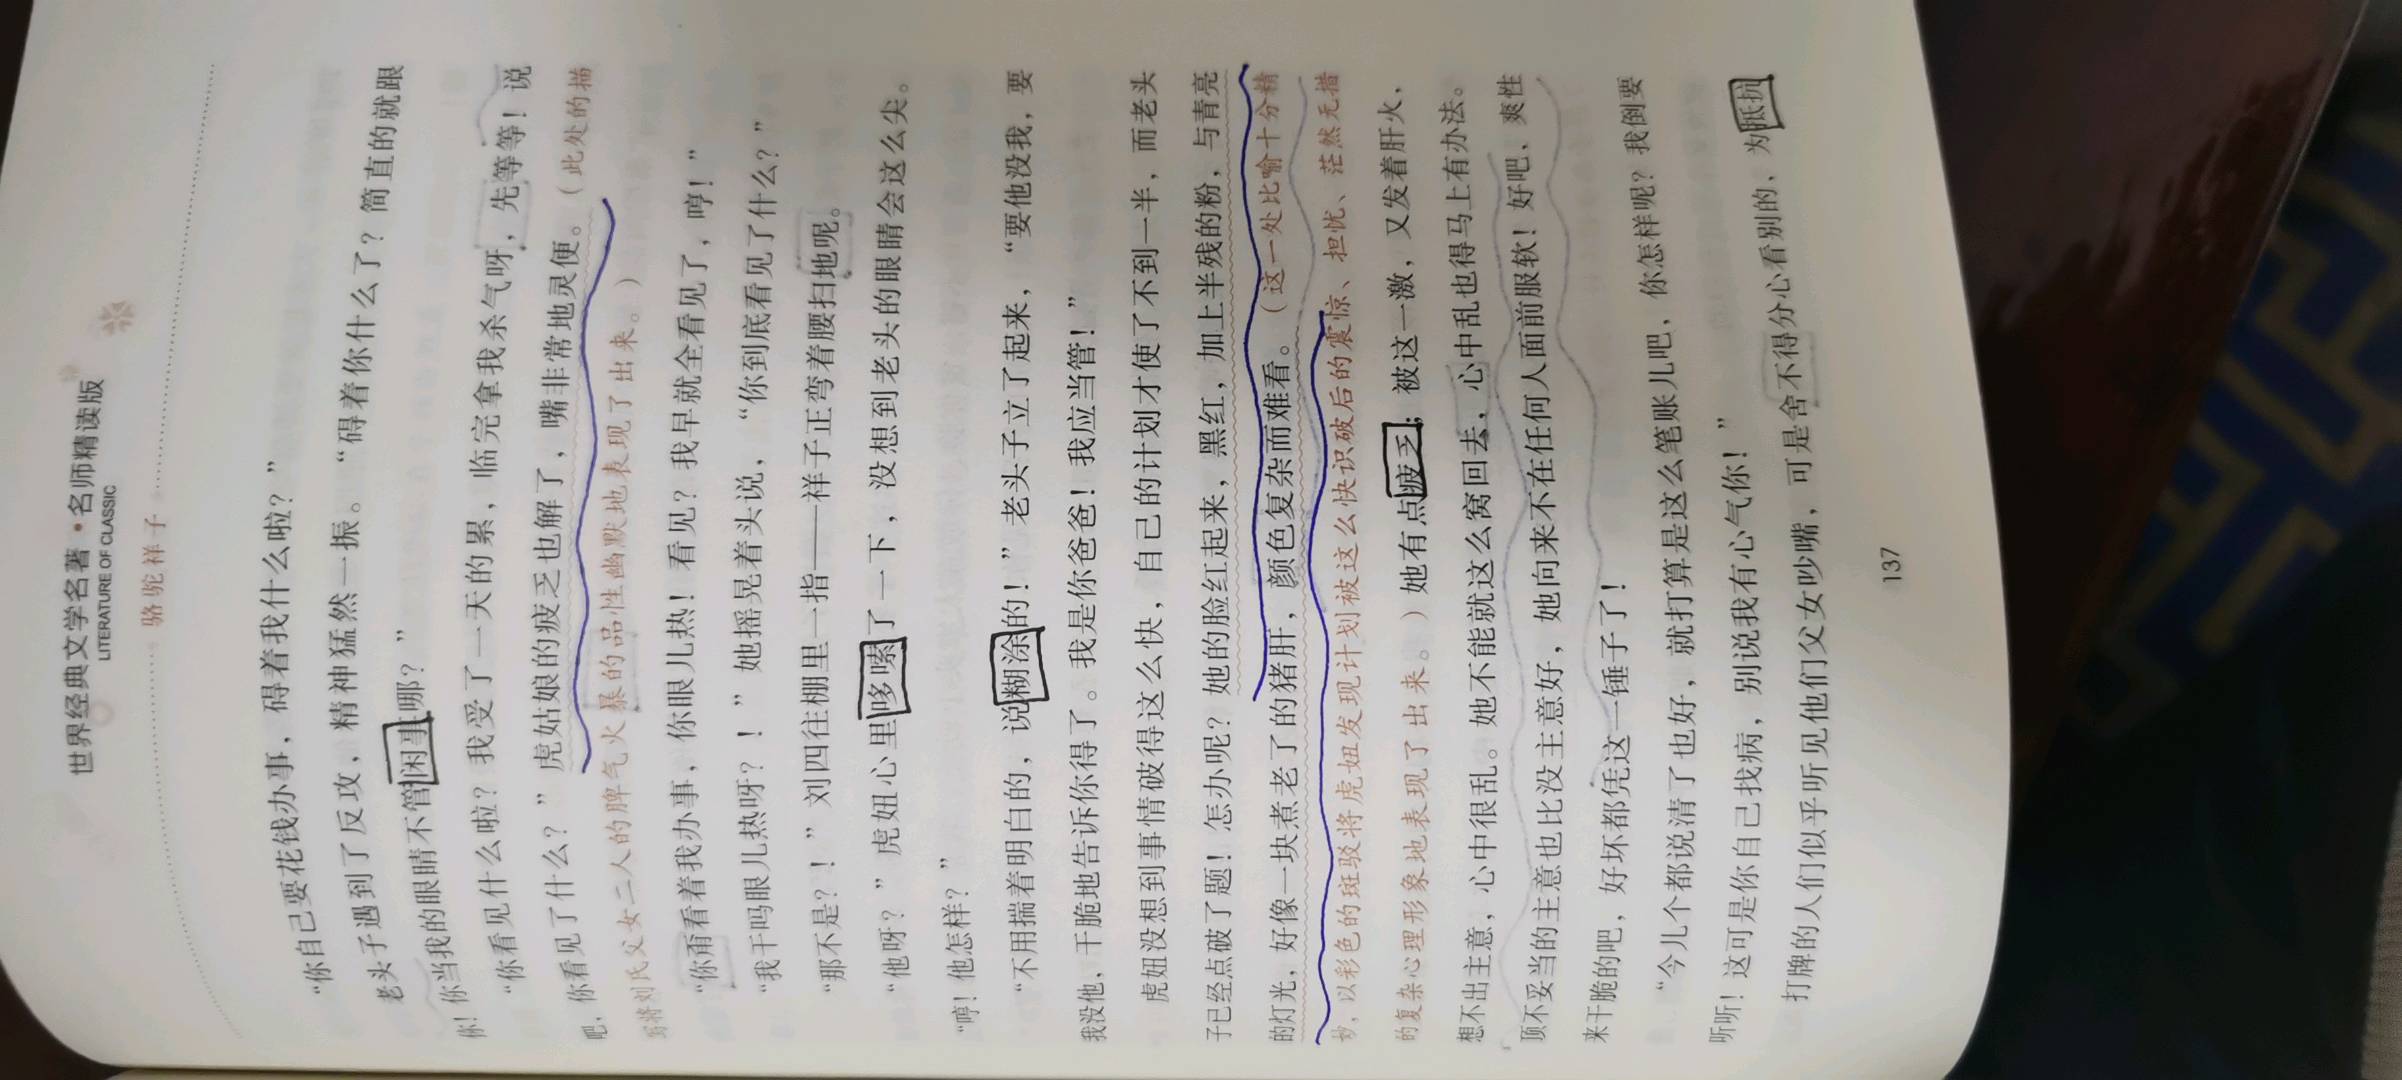 世界经典文学名著·名师精读版
LITERATURE OF CLASSIC
骆驼祥子
“你自己要花钱办事，碍着我什么啦？”
老头子遇到了反攻，精神猛然一振。“碍着你什么了？简直的就跟
你！你当我的眼睛不管闲事哪？”
“你看见什么啦？我受了一天的累，临完拿我杀气呀，先等等！说
吧，你看见了什么？”虎姑娘的疲乏也解了，嘴非常地灵便。（此处的描
写将刘氏父女二人的脾气火暴的品性幽默地表现了出来。）
“你甭看着我办事，你眼儿热！看见？我早就全看见了，哼！”
“我干吗眼儿热呀？！”她摇晃着头说，“你到底看见了什么？”
“那不是？！”刘四往棚里一指——祥子正弯着腰扫地呢。
“他呀？”虎妞心里哆嗦了一下，没想到老头的眼睛会这么尖。
“哼！他怎样？”
“不用揣着明白的，说糊涂的！”老头子立了起来，“要他没我，要
我没他，干脆地告诉你得了。我是你爸爸！我应当管！”
虎妞没想到事情破得这么快，自己的计划才使了不到一半，而老头
子已经点破了题！怎办呢？她的脸红起来，黑红，加上半残的粉，与青亮
的灯光，好像一块煮老了的猪肝，颜色复杂而难看。（这一处比喻十分精
妙，以彩色的斑驳将虎妞发现计划被这么快识破后的震惊、担忧、茫然无措
的复杂心理形象地表现了出来。）她有点疲乏；被这一激，又发着肝火，
想不出主意，心中很乱。她不能就这么窝回去，心中乱也得马上有办法。
顶不妥当的主意也比没主意好，她向来不在任何人面前服软！好吧，爽性
来干脆的吧，好坏都凭这一锤子了！
“今儿个都说清了也好，就打算是这么笔账儿吧，你怎样呢？我倒要
听听！这可是你自己找病，别说我有心气你！”
打牌的人们似乎听见他们父女吵嘴，可是舍不得分心看别的，为抵抗
137